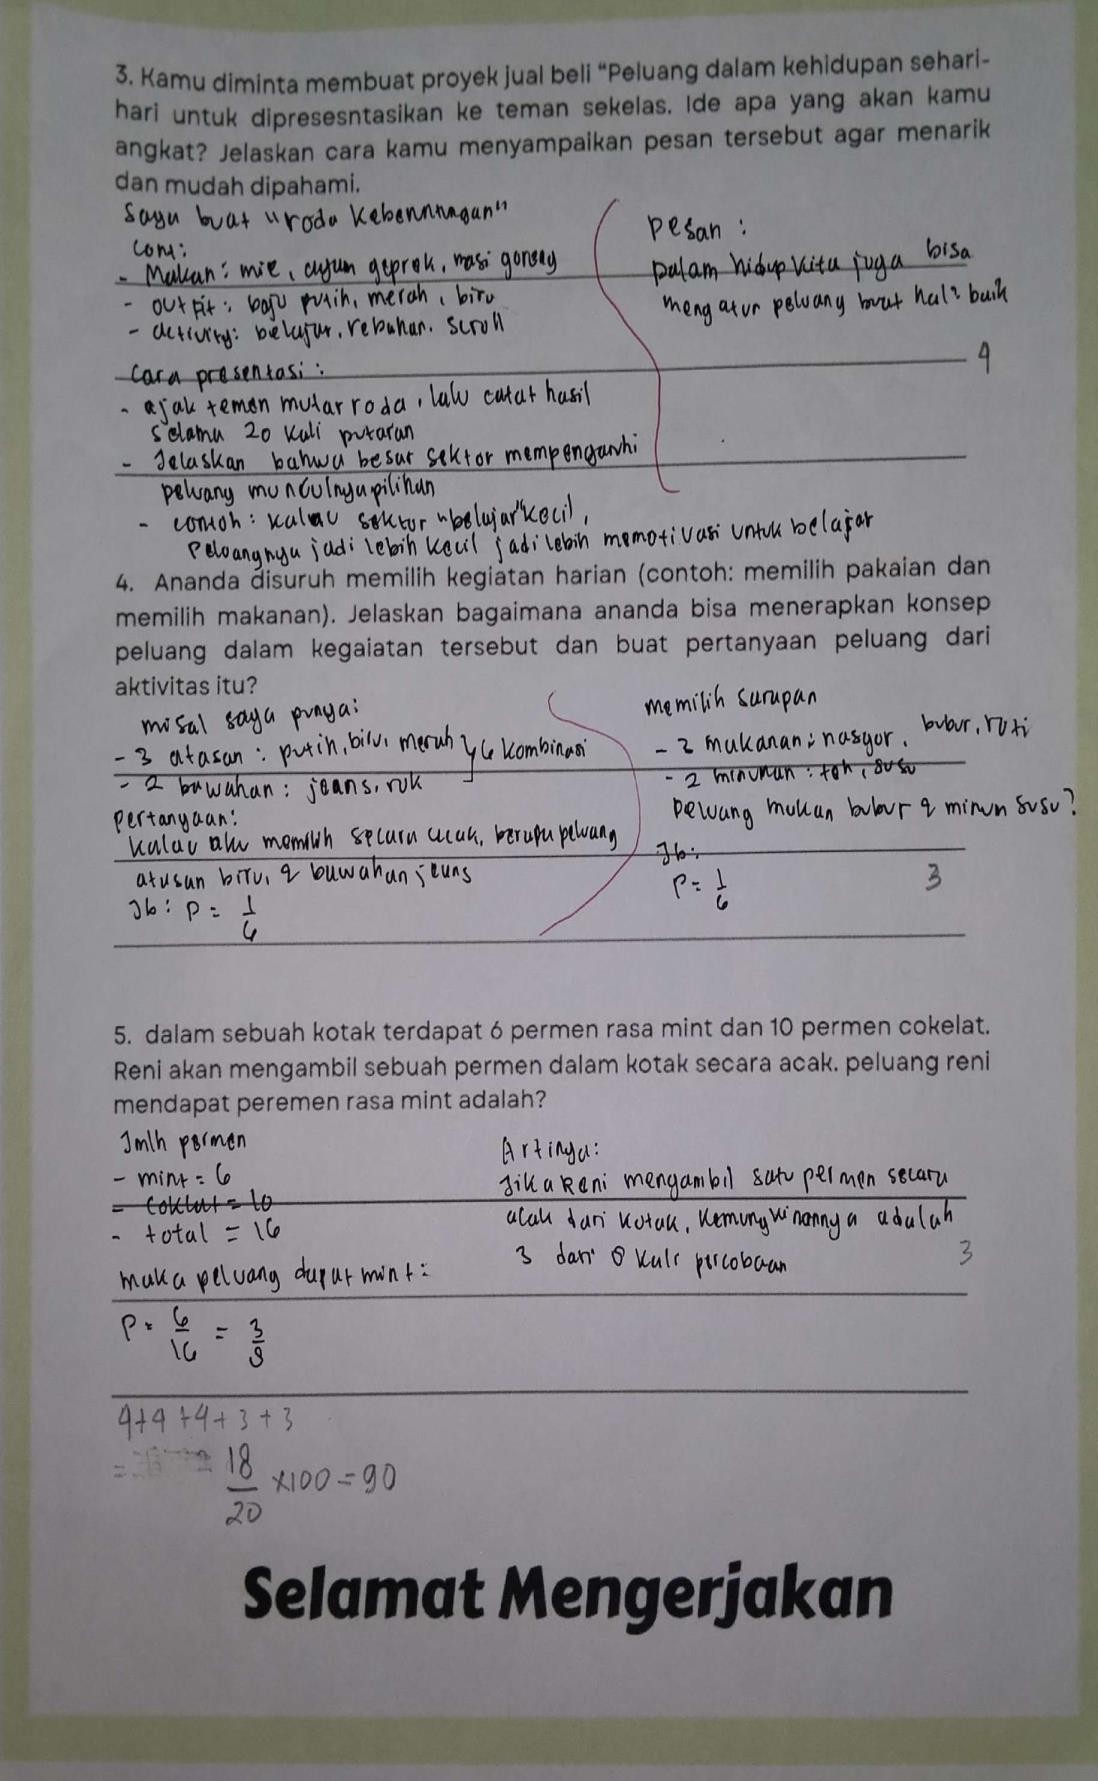 3. Kamu diminta membuat proyek jual beli "Peluang dalam kehidupan sehari-
hari untuk dipresesntasikan ke teman sekelas. Ide apa yang akan kamu
angkat? Jelaskan cara kamu menyampaikan pesan tersebut agar menarik
dan mudah dipahami.
Saya buat "roda Keberuntungan"
- Makan: mie, ayam geprek, nasi goreng
- outfit: baju putih, merah, biru
- activity: belajar, rebahan. scroll
Cara presentasi:
- ajak temen mutar roda, lalu catat hasil
selama 20 kali putaran
- Jelaskan bahwa besar sektor mempengaruhi
peluang munculnya pilihan
- contoh: kalau sektor "belajar" kecil,
Peluangnya jadi lebih kecil jadi lebih memotivasi untuk belajar
Pesan:
Dalam hidup kita juga bisa
mengatur peluang buat hal2 baik
4
4. Ananda disuruh memilih kegiatan harian (contoh: memilih pakaian dan
memilih makanan). Jelaskan bagaimana ananda bisa menerapkan konsep
peluang dalam kegaiatan tersebut dan buat pertanyaan peluang dari
aktivitas itu?
misal saya punya:
- 3 atasan: putih, biru, merah } 6 kombinasi
- 2 bawahan: jeans, rok
Pertanyaan:
kalau aku memilih secara acak, berapa peluang
atasan biru, & bawahan jeans
Jb: P = 1/6
memilih sarapan
- 3 makanan: nasgor, bubur, roti
- 2 minuman: teh, susu
Peluang makan bubur & minum susu?
Jb:
P = 1/6
3
5. dalam sebuah kotak terdapat 6 permen rasa mint dan 10 permen cokelat.
Reni akan mengambil sebuah permen dalam kotak secara acak. peluang reni
mendapat peremen rasa mint adalah?
Jmlh permen
- mint = 6
- coklat = 10
- total = 16
maka peluang dapat mint:
P = 6/16 = 3/8
Artinya:
Jika Reni mengambil satu permen secara
acak dari kotak, kemungkinannya adalah
3 dari 8 kali percobaan
3
4+4+4+3+3
= 18/20 x100 = 90
Selamat Mengerjakan